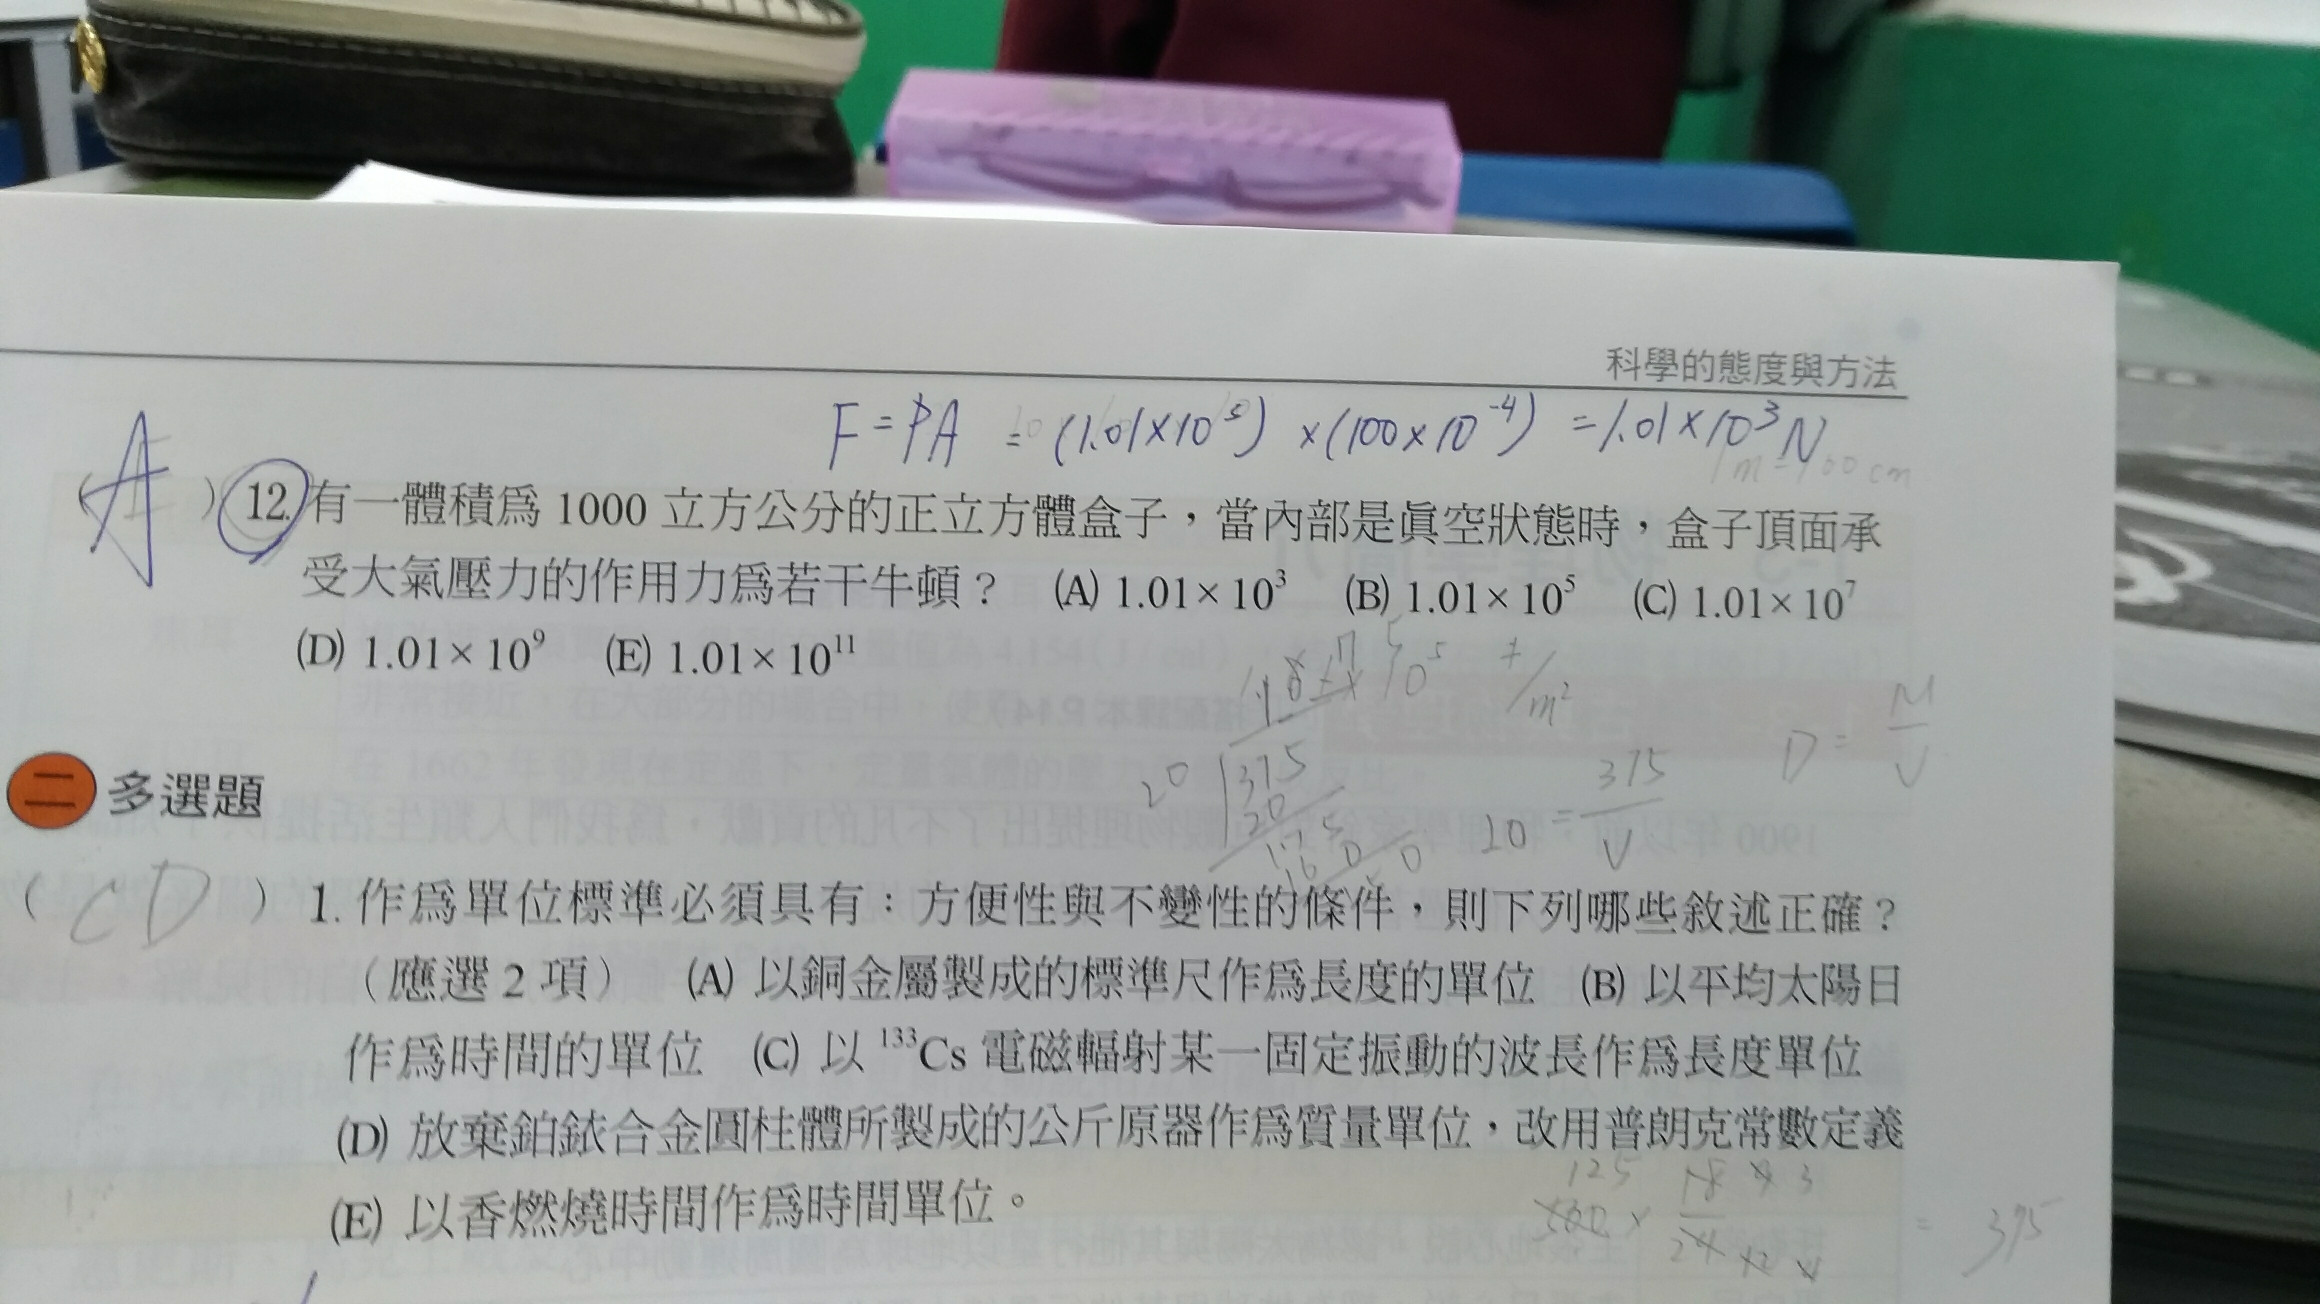 科學的態度與方法
F = PA = (1.01×10⁵) ×(100×10⁻⁴) = 1.01×10³ N
1m = 100 cm
(A) 12. 有一體積為 1000 立方公分的正立方體盒子，當內部是真空狀態時，盒子頂面承
受大氣壓力的作用力為若干牛頓？ (A) 1.01×10³ (B) 1.01×10⁵ (C) 1.01×10⁷
(D) 1.01×10⁹ (E) 1.01×10¹¹
20 375
20
20 = 375/V
D = M/V
二 多選題
(CD) 1. 作為單位標準必須具有：方便性與不變性的條件，則下列哪些敘述正確？
（應選 2 項） (A) 以銅金屬製成的標準尺作為長度的單位 (B) 以平均太陽日
作為時間的單位 (C) 以 ¹³³Cs 電磁輻射某一固定振動的波長作為長度單位
(D) 放棄鉑銥合金圓柱體所製成的公斤原器作為質量單位，改用普朗克常數定義
(E) 以香燃燒時間作為時間單位。
125
500 × 18/24 = 375